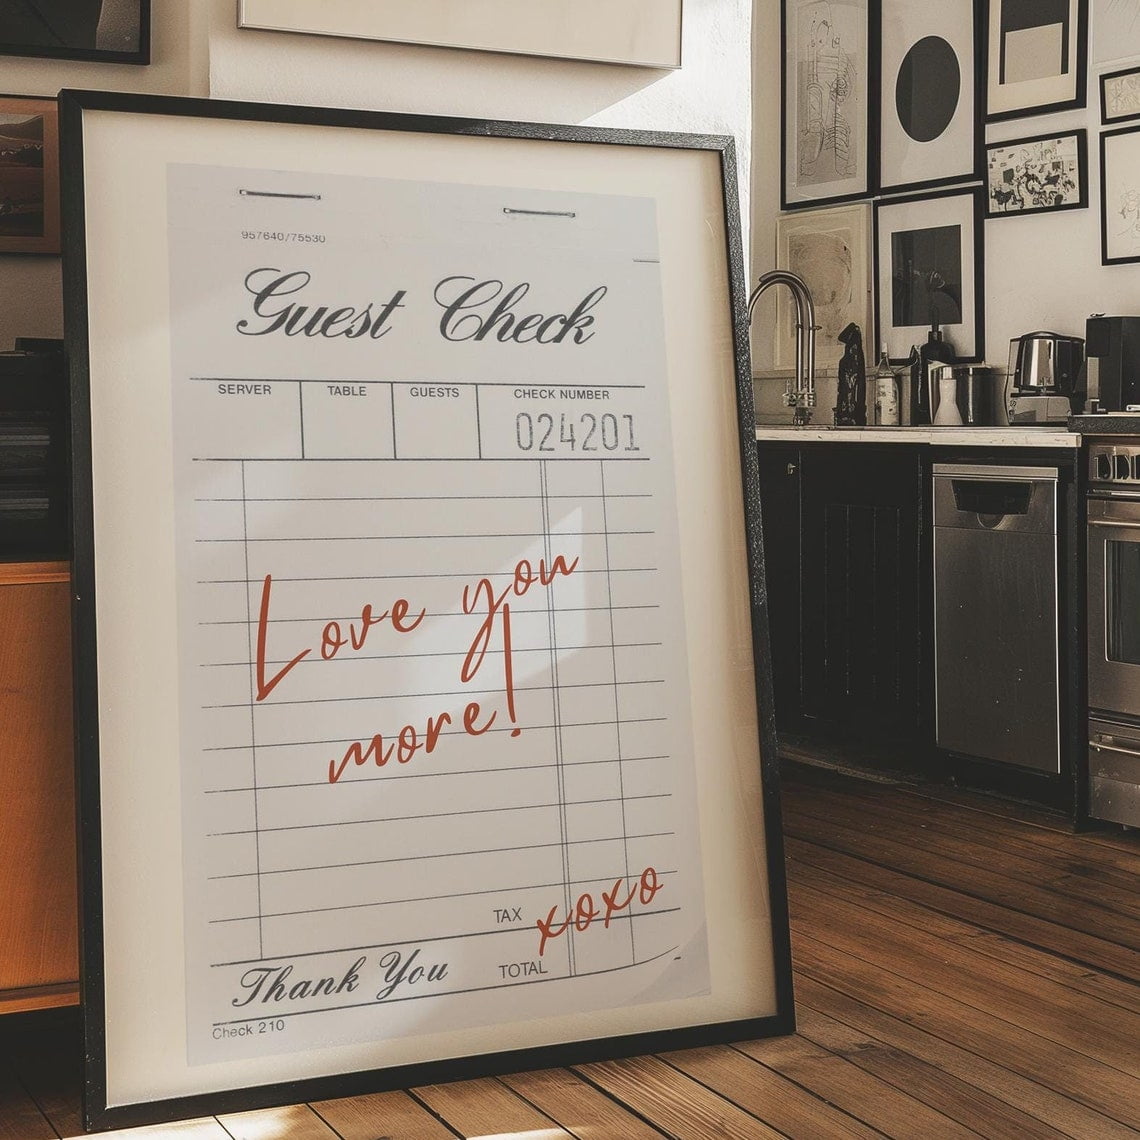 957640/75530
Guest Check
SERVER TABLE GUESTS CHECK NUMBER
024201
Love you
more!
TAX xoxo
Thank You TOTAL
Check 210